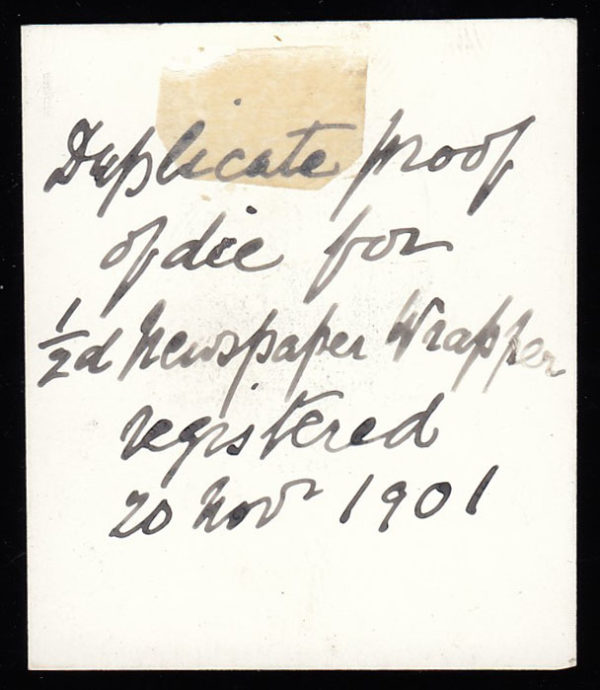 Duplicate proof
of die for
½d Newspaper Wrapper
registered
20 Novr 1901